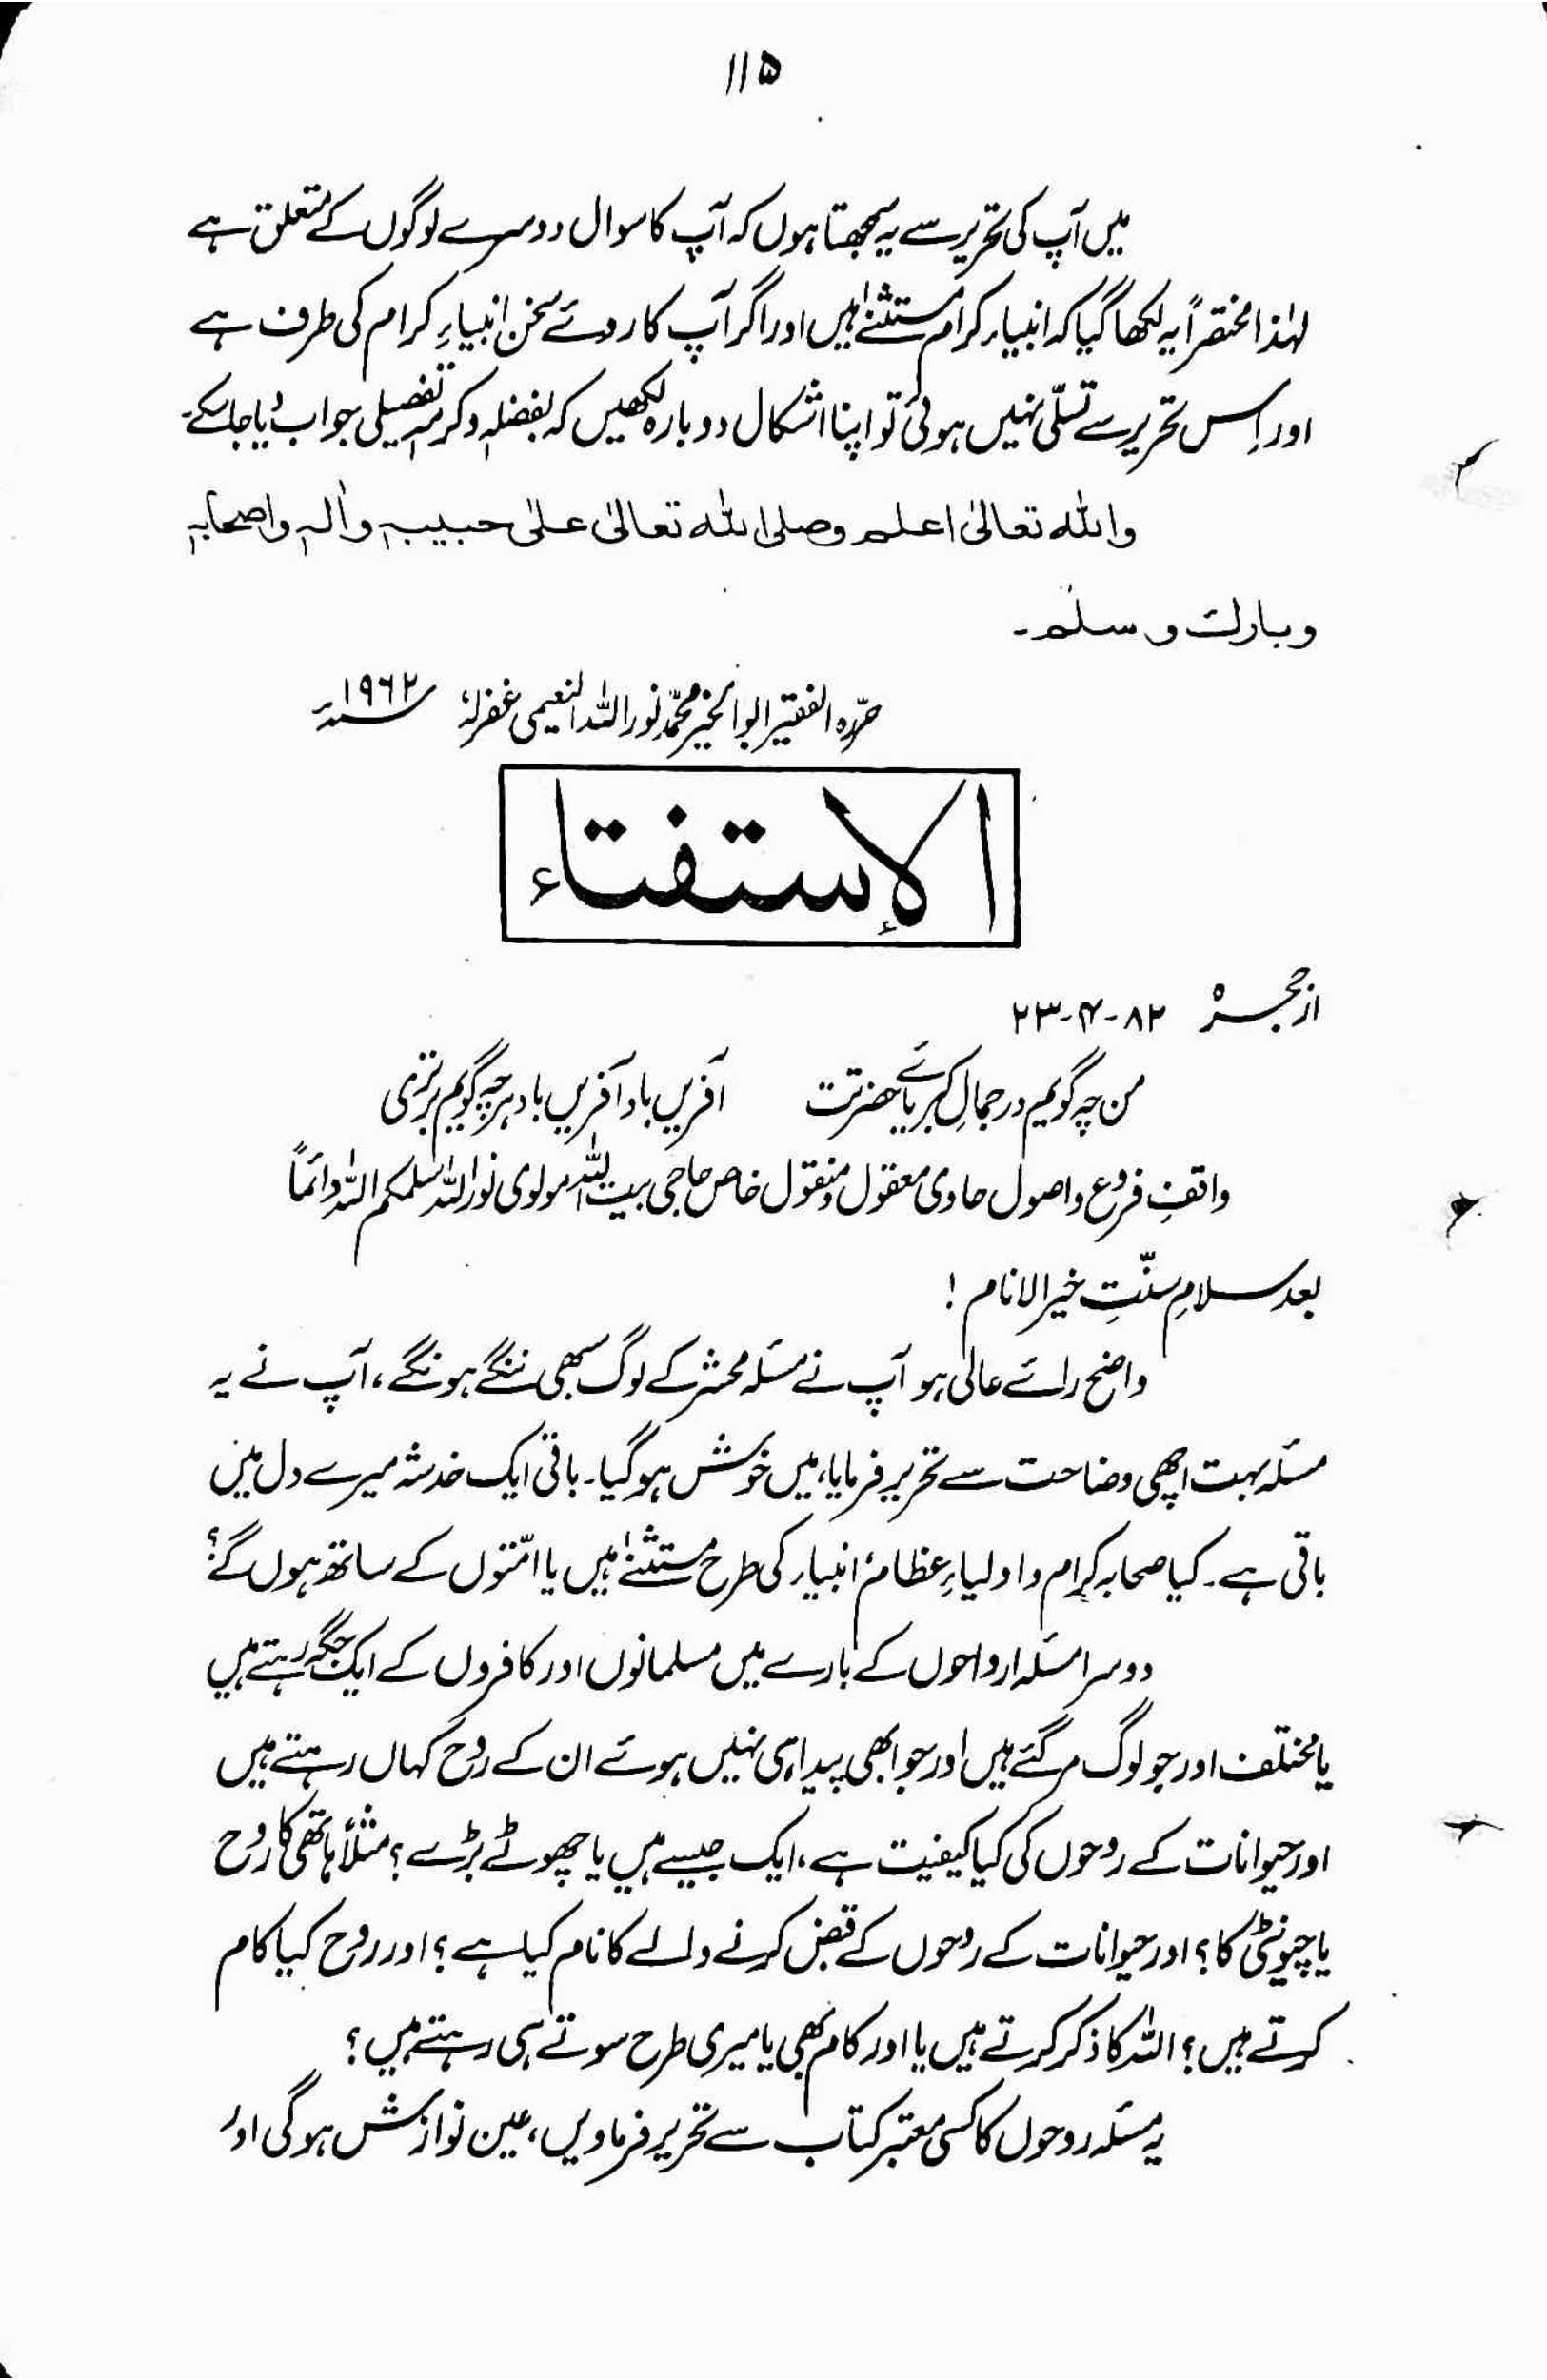 ۱۱۵
میں آپ کی تحریر سے یہ سمجھتا ہوں کہ آپ کا سوال دوسرے لوگوں کے متعلق ہے
لہٰذا مختصراً یہ لکھا گیا کہ انبیاء کرام مستثنےٰ ہیں اور اگر آپ کا روئے سخن انبیاءِ کرام کی طرف ہے
اور اِس تحریر سے تسلّی نہیں ہوئی تو اپنا اشکال دوبارہ لکھیں کہ بفضلہٖ وکرمہٖ تفصیلی جواب دیا جا سکے۔
واللہ تعالیٰ اعلم وصلی اللہ تعالیٰ علیٰ حبیبہٖ واٰلہٖ واصحابہٖ
وبارک وسلم۔
حرّرہ الفقیر ابوالخیر محمّد نور اللہ النعیمی غفرلہٗ ۱۹۶۲ء
الإستفتاء
از حجرہ ۸۲-۴-۲۳
من چہ گویم در جمالِ کبریائے حضرتت آفریں باد آفریں باد ہرچہ گویم برتری
واقفِ فروع واصول حاوی معقول و منقول خاص حاجی بیت اللہ مولوی نور اللہ سلمکم اللہ دائماً
بعد سلامِ سنّتِ خیر الانام !
واضح رائے عالی ہو آپ نے مسئلہ محشر کے لوگ سبھی ننگے ہونگے، آپ نے یہ
مسئلہ بہت اچھی وضاحت سے تحریر فرمایا، میں خوش ہو گیا۔ باقی ایک خدشہ میرے دل میں
باقی ہے۔ کیا صحابہ کرام و اولیاءِ عظام انبیاء کی طرح مستثنےٰ ہیں یا امّتوں کے ساتھ ہوں گے؟
دوسرا مسئلہ ارواحوں کے بارے میں مسلمانوں اور کافروں کے ایک جگہ رہتے ہیں
یا مختلف اور جو لوگ مر گئے ہیں اور جو ابھی پیدا ہی نہیں ہوئے ان کے روح کہاں رہتے ہیں
اور حیوانات کے روحوں کی کیا کیفیت ہے، ایک جیسے ہیں یا چھوٹے بڑے ؟ مثلاً ہاتھی کا روح
یا چیونٹی کا؟ اور حیوانات کے روحوں کے قبض کرنے والے کا نام کیا ہے ؟ اور روح کیا کام
کرتے ہیں؟ اللہ کا ذکر کرتے ہیں یا اور کام بھی یا میری طرح سوتے ہی رہتے ہیں ؟
یہ مسئلہ روحوں کا کسی معتبر کتاب سے تحریر فرماویں، عین نوازش ہو گی اور